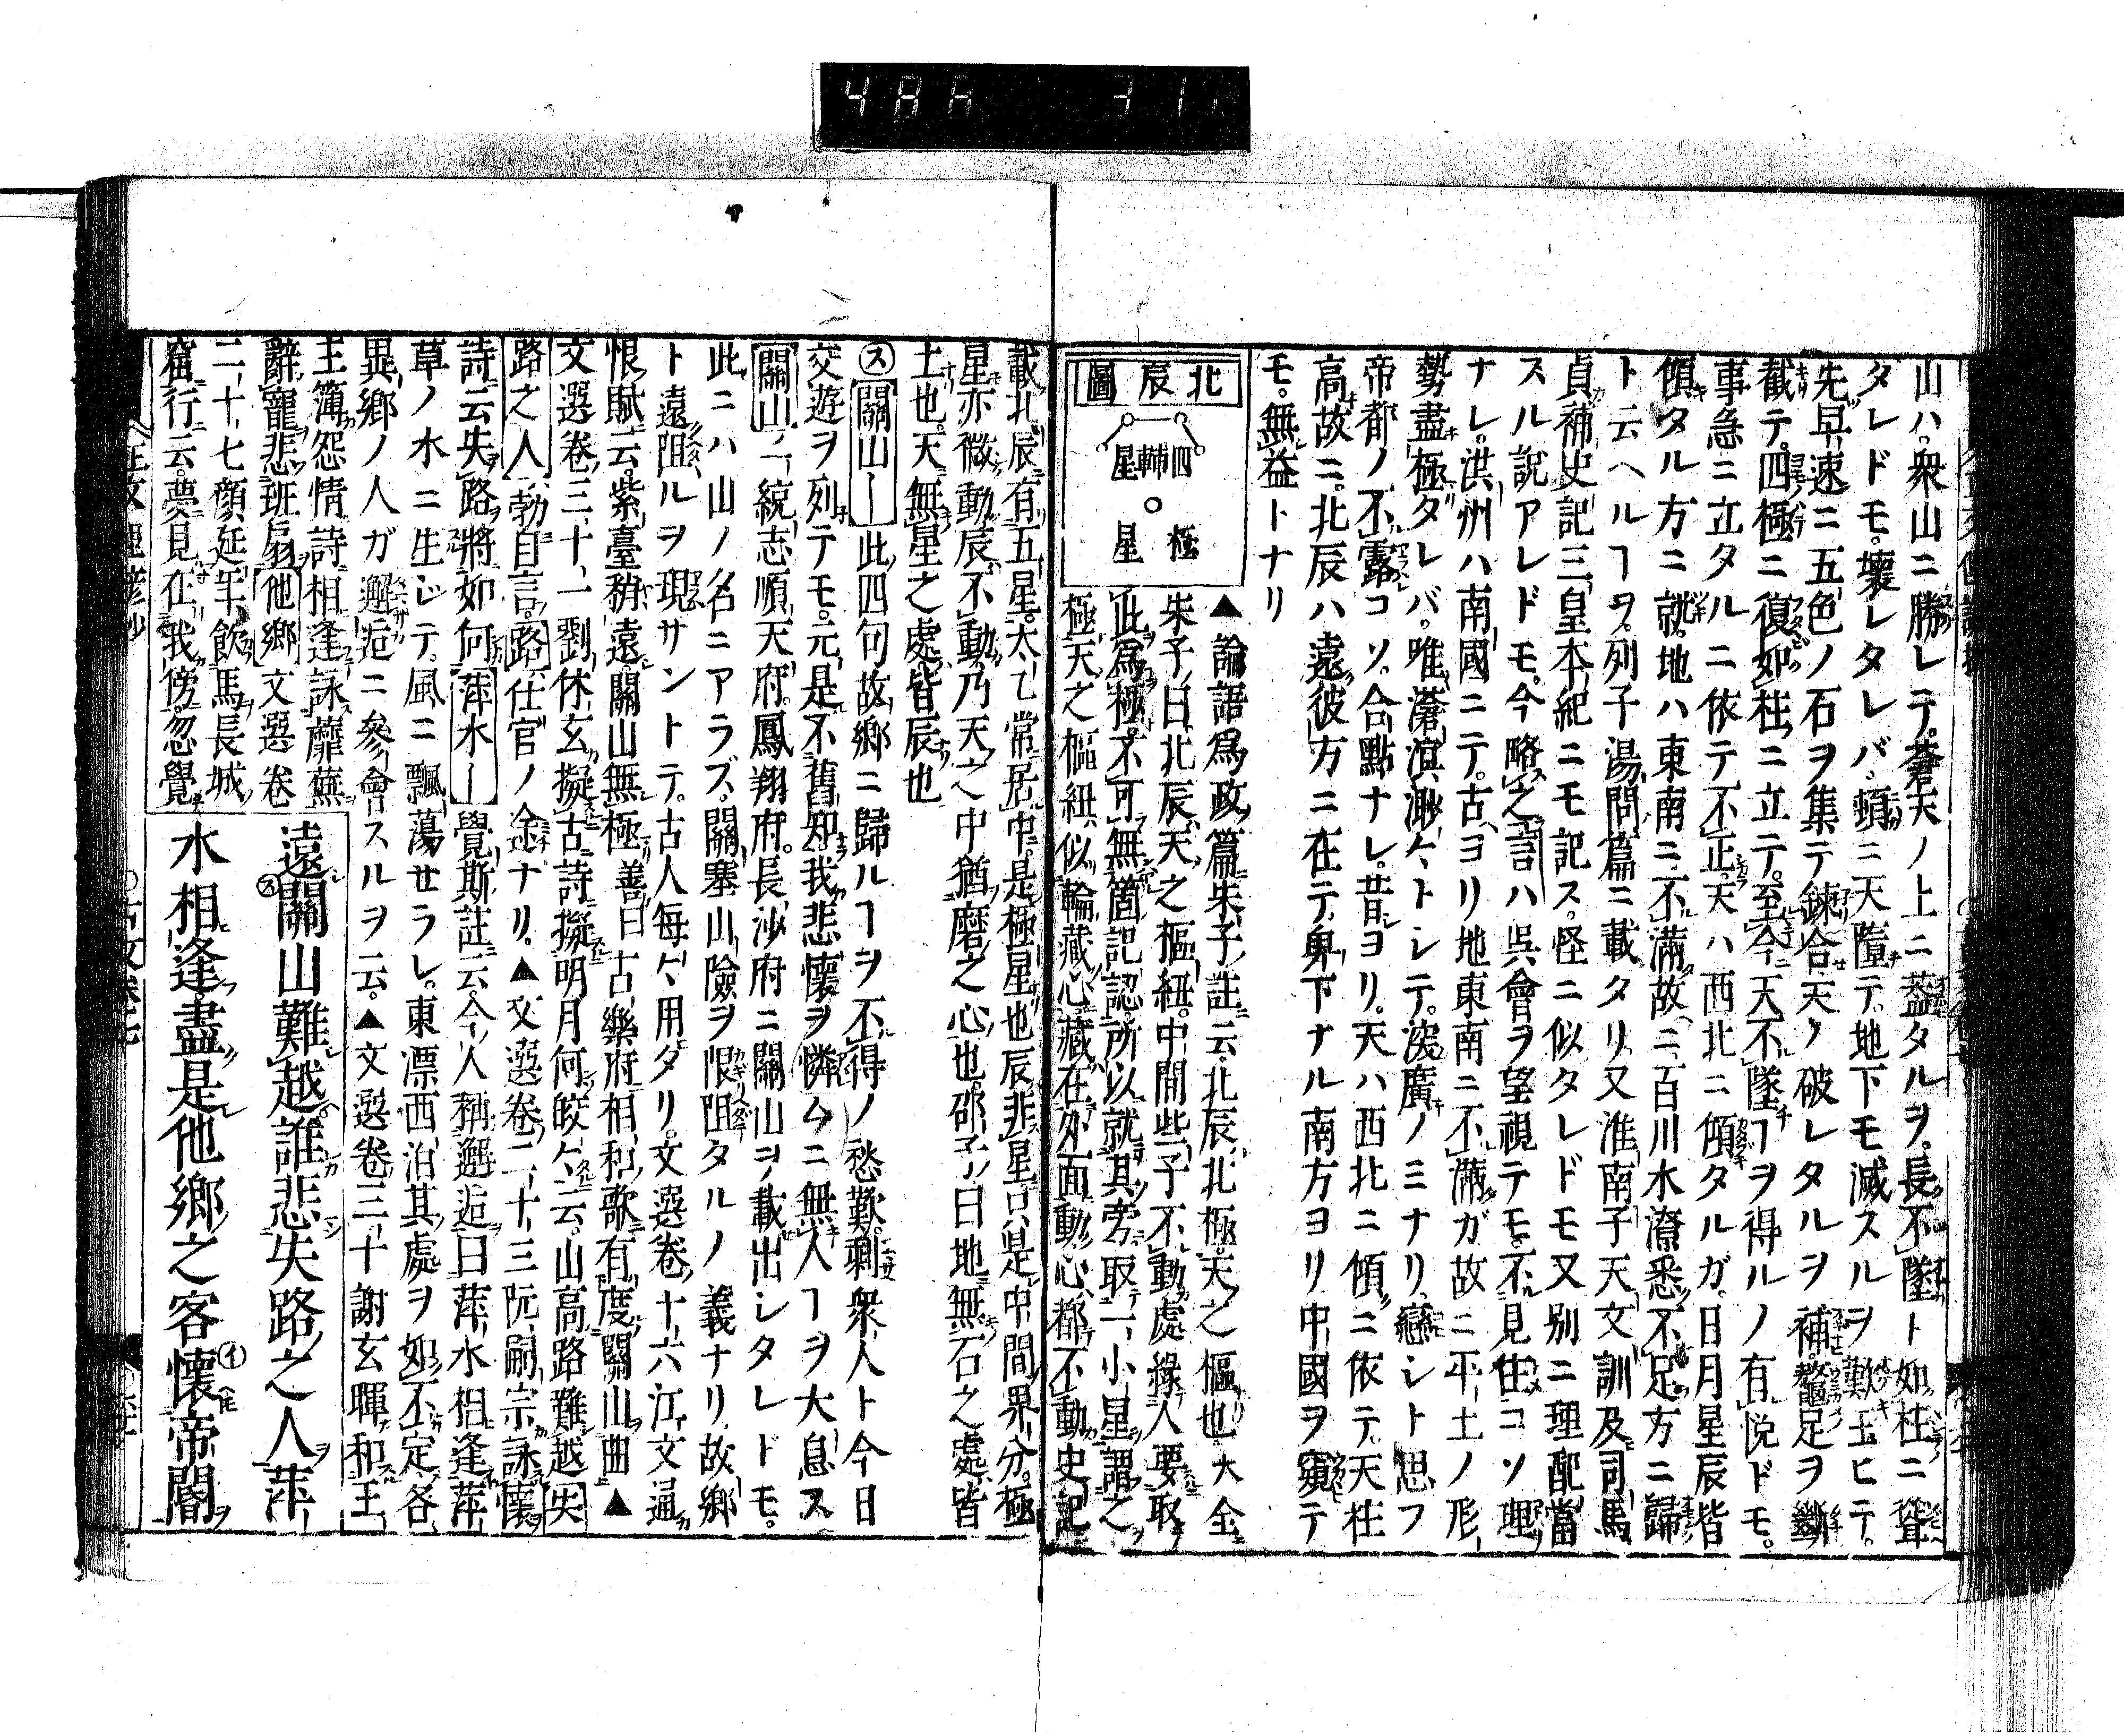 山ハ衆山ニ勝レテ蒼天ノ上ニ蓋タルヲ長不墜ト如柱ニ聳
タレドモ壞レタレバ頓ニ天墮テ地下モ滅スルヲ歎玉ヒテ
先早速ニ五色ノ石ヲ集テ鍊合天ノ破レタルヲ補鼇足ヲ斷
截テ四極ニ復如柱ニ立テ至今天不墜ヿヲ得ルノ有悦ドモ
事急ニ立タルニ依テ不正天ハ西北ニ傾タルガ日月星辰皆
傾タル方ニ就地ハ東南ニ不滿故ニ百川水潦悉不足方ニ歸
ト云ヘルヿヲ列子湯問篇ニ載タリ又淮南子天文訓及司馬
貞補史記三皇本紀ニモ記ス怪ニ似タレドモ又別ニ理配當
スル説アレドモ今略之言ハ呉會ヲ望視テモ不見住コソ理
ナレ洪州ハ南國ニテ古ヨリ地東南ニ不滿ガ故ニ平土ノ形
勢盡極タレバ唯滄溟渺々トシテ深廣ノミナリ戀シト思フ
帝都ノ不露コソ合點ナレ昔ヨリ天ハ西北ニ傾ニ依テ天柱
高故ニ北辰ハ遠彼方ニ在テ卑下ナル南方ヨリ中國ヲ窺テ
モ無益トナリ
北辰圖
四輔星
極星
▲論語爲政篇朱子註云北辰北極天之樞也大全
朱子曰北辰天之樞紐中間些子不動處緣人要取
此爲極不可無箇記認所以就其旁取一小星謂之
極天之樞紐似輪藏心藏在外面動心都不動史記
載北辰有五星太乙常居中是極星也辰非星只是中間界分極
星亦微動辰不動乃天之中猶磨之心也邵子曰地無石之處皆
土也天無星之處皆辰也
㋜關山〡此四句故郷ニ歸ルヿヲ不得ノ愁歎剩衆人ト今日
交遊ヲ列テモ元是不舊知我悲懷ヲ憐ムニ無人ヿヲ大息ス
關山ニ一統志順天府鳳翔府長沙府ニ關山ヲ載出シタレドモ
此ニハ山ノ名ニアラズ關塞山險ヲ限阻タルノ義ナリ故郷
ト遠阻ルヲ現サントテ古人毎々用タリ文選卷十六江文通
恨賦云紫臺稍遠關山無極善曰古樂府相和歌有度關山曲▲
文選卷三十一劉休玄擬古詩擬明月何皎々云山高路難越失
路之人勃自言路仕官ノ途ナリ▲文選卷二十三阮嗣宗詠懷
詩云失路將如何萍水〡覺斯註云今人稱邂逅曰萍水相逢萍
草ノ水ニ生シテ風ニ飄蕩せラレ東漂西泊其處ヲ如不定各
異郷ノ人ガ邂逅ニ參會スルヲ云▲文選卷三十謝玄暉和王
主簿怨情詩相逢詠蘼蕪
辭寵悲班扇他郷文選卷
二十七顔延年飲馬長城
窟行云夢見在我傍忽覺
遠關山難越誰悲失路之人萍
水相逢盡是他郷之客懷帝閽